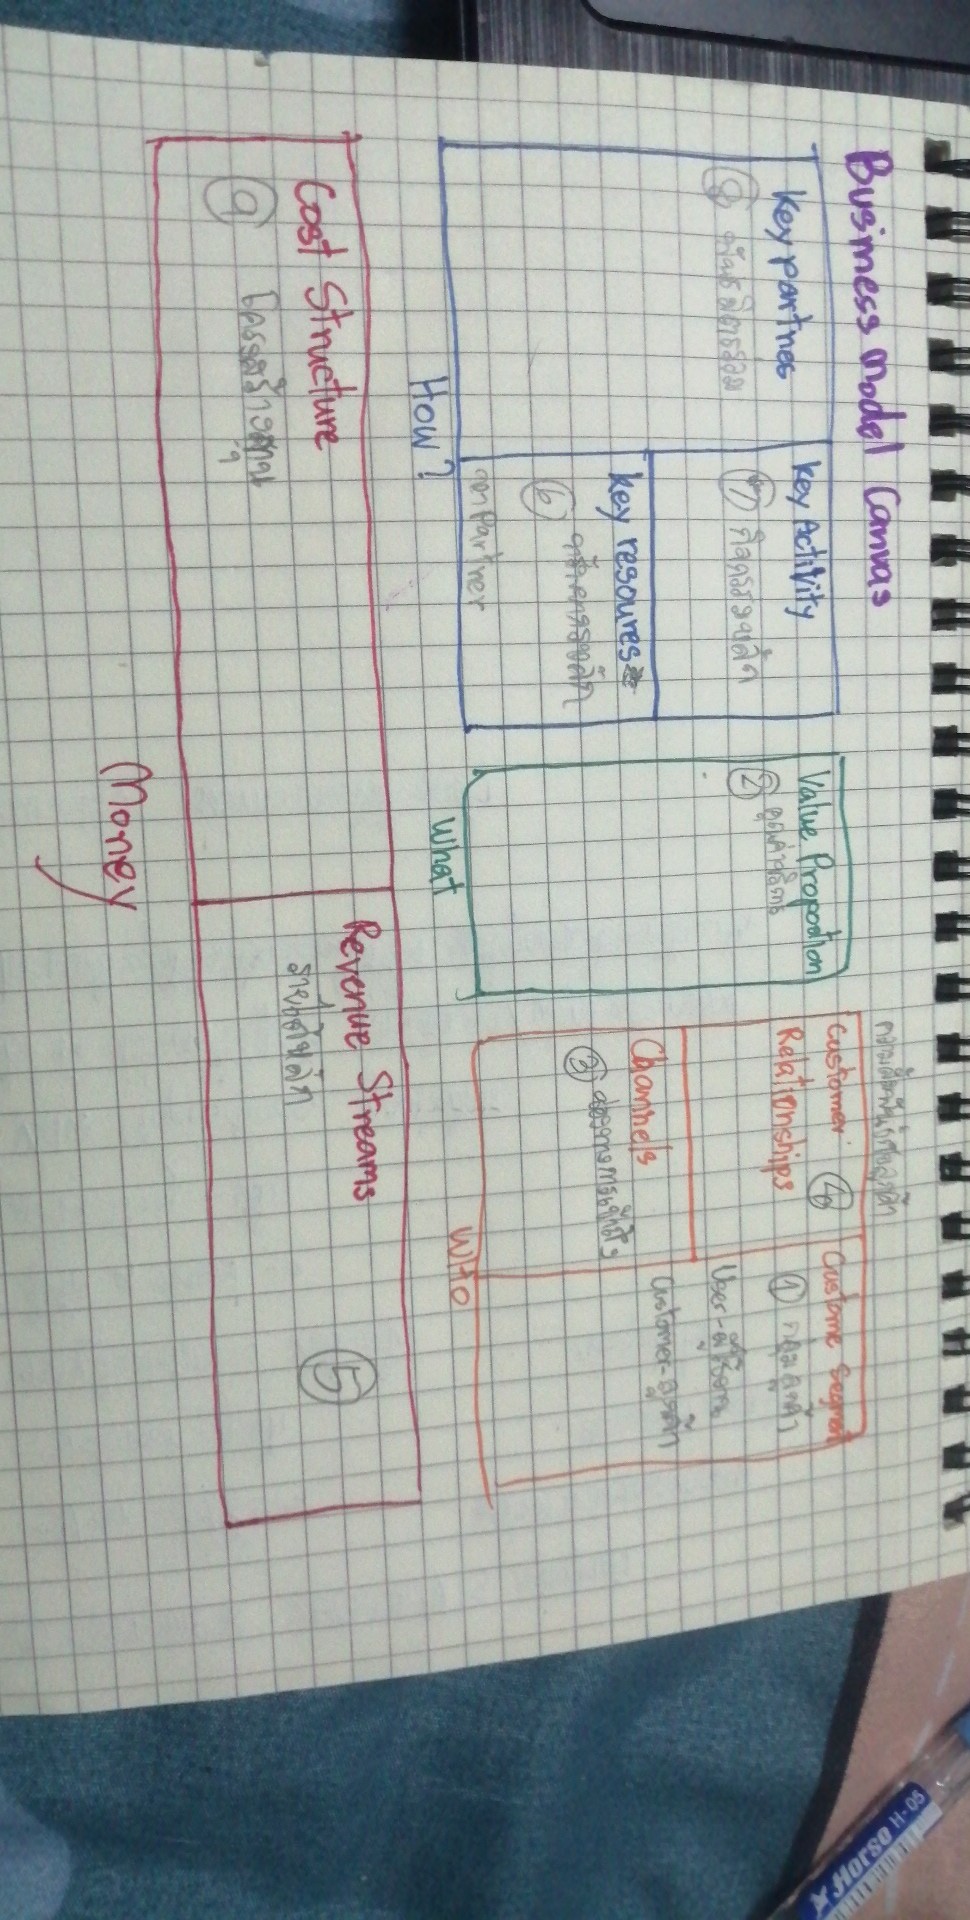 Business Model Canvas
key partnes
8 พันธมิตรร่วม
key Activity
7 กิจกรรมหลัก
key resoures
ทรัพยากรหลัก
6
จาก Partner
How?
Value Propostion
2 คุณค่าบริการ
What
ความสัมพันธ์ต่อลูกค้า
Customer 4
Relationships
Channels
3 ช่องทางการเข้าถึง
Custome Segment
1 กลุ่มลูกค้า
User-ผู้ใช้งาน
Customer-ลูกค้า
WHO
Cost Structure
9 โครงสร้าง
Revenue Streams
5
รายได้หลัก
Money
Horse H-05